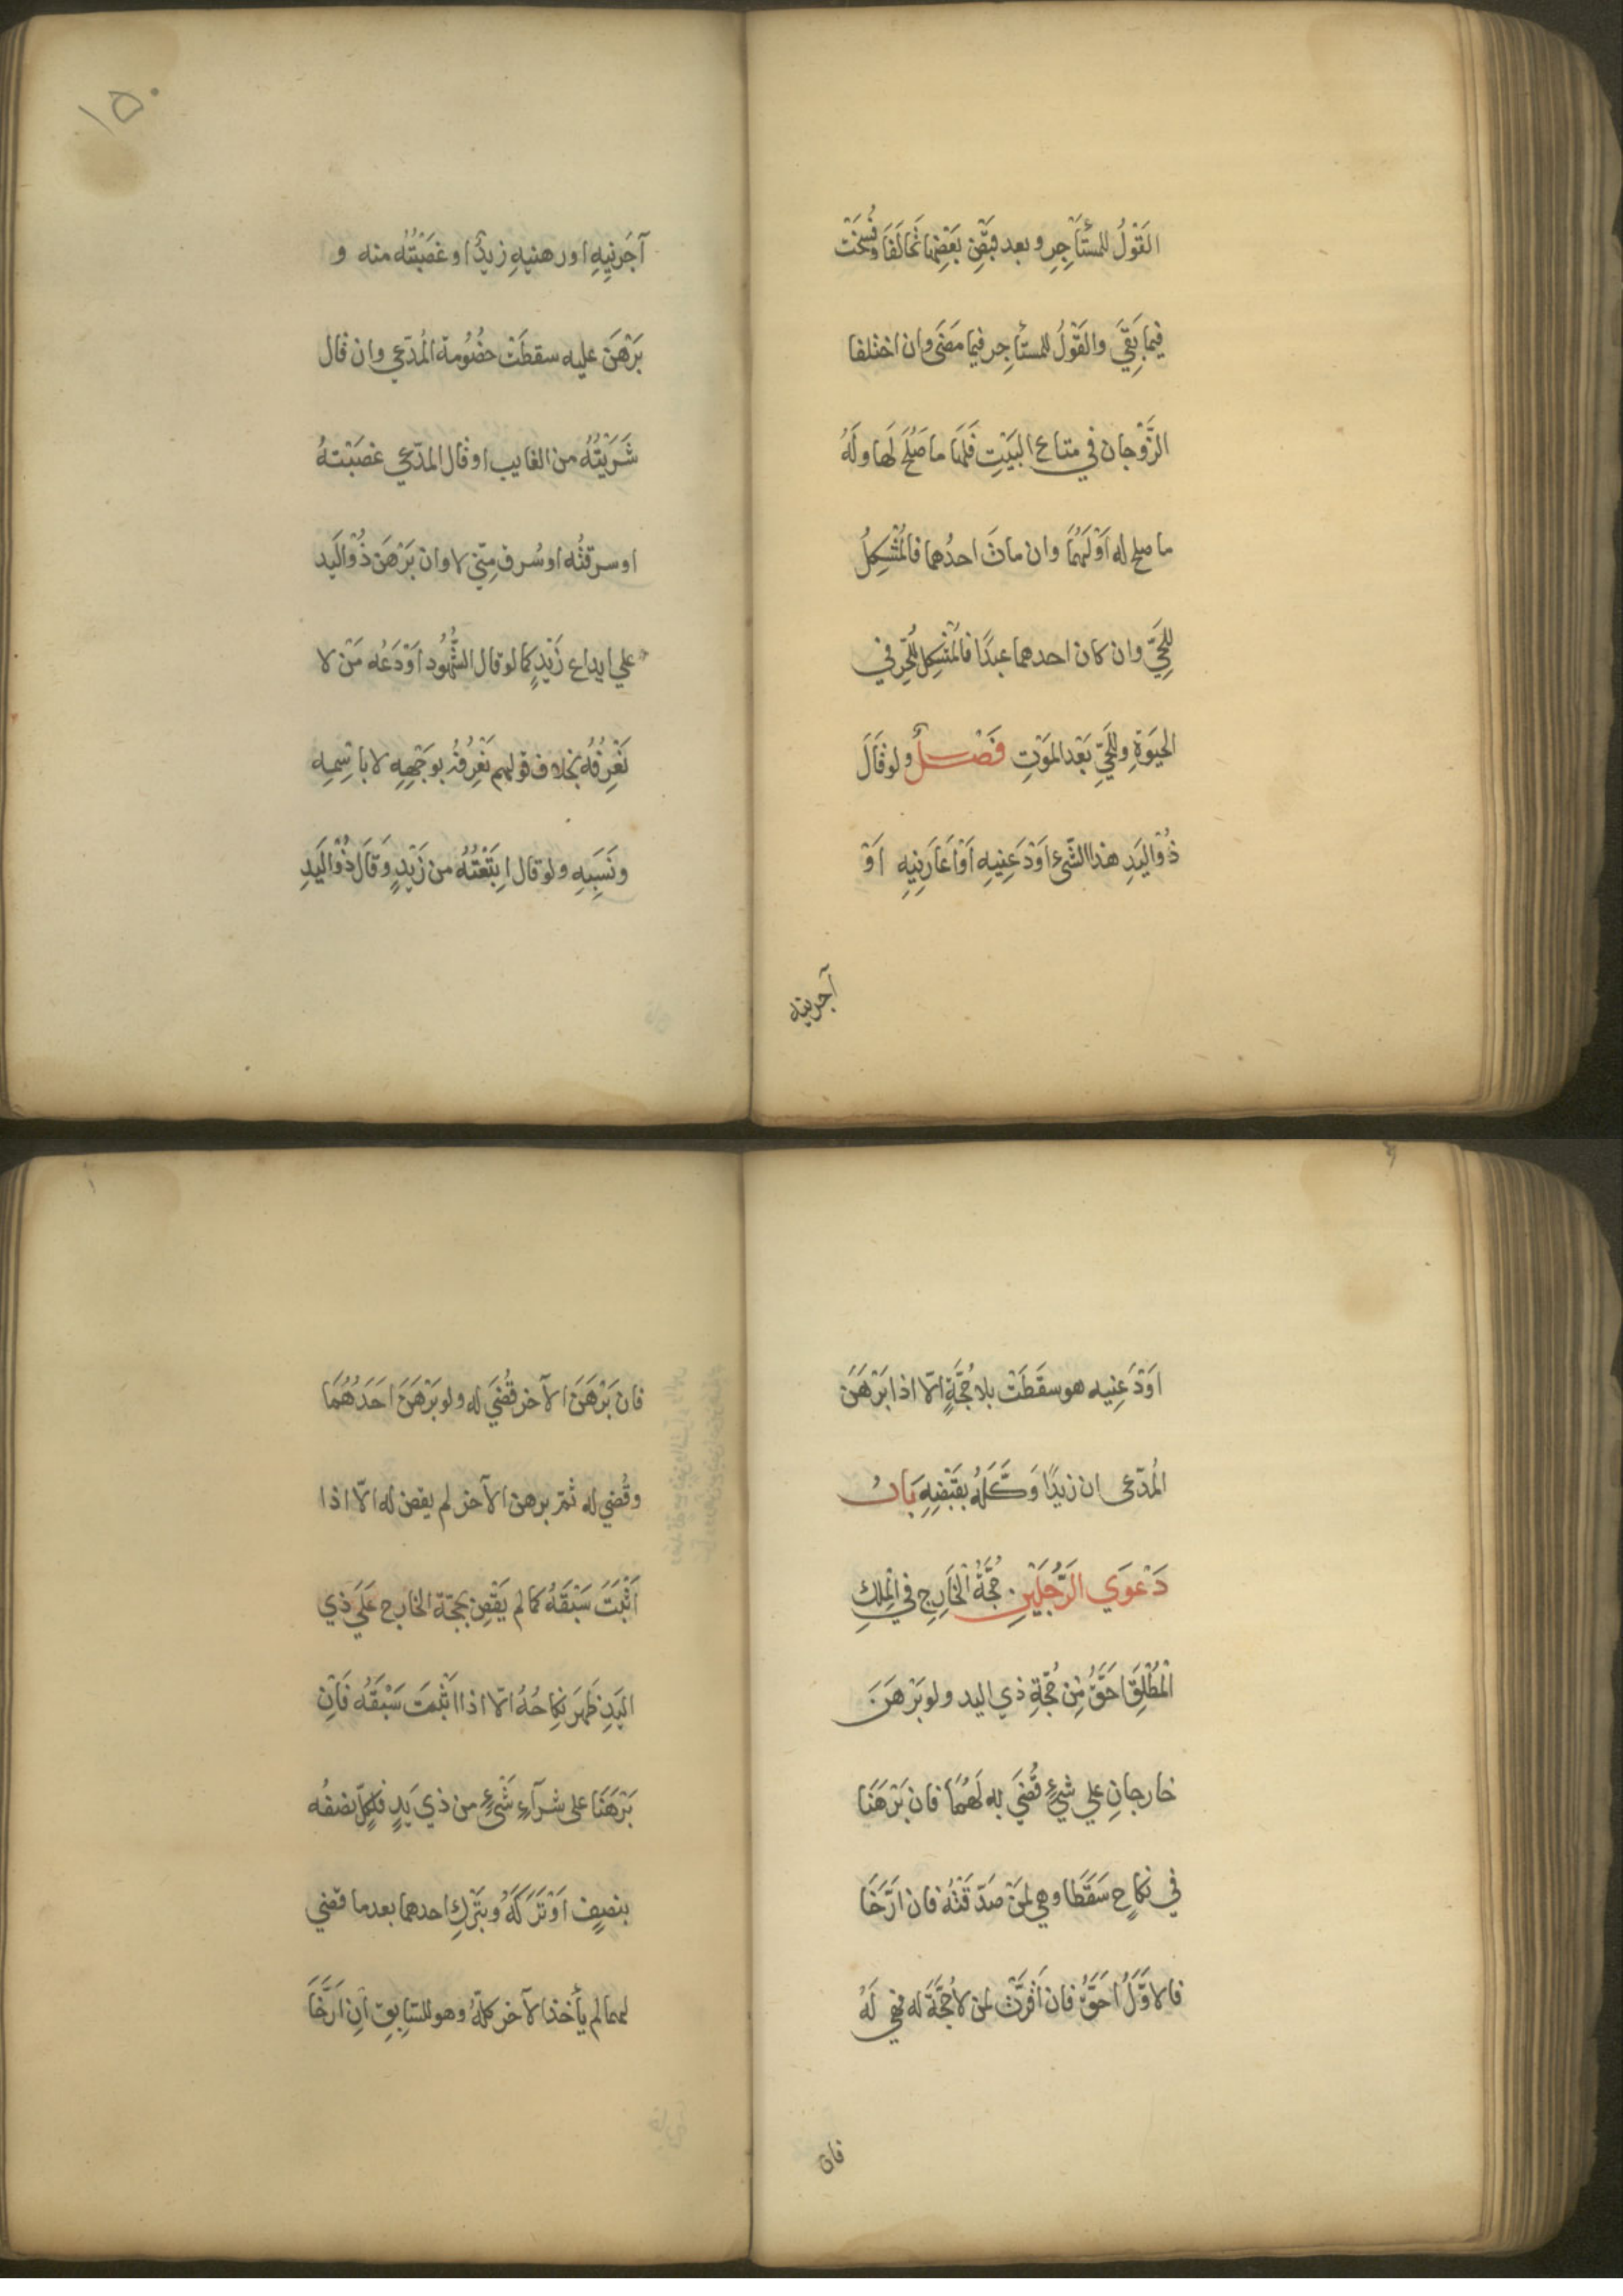 القَوْلُ للمستَأجِرِ وبعد قبَضِ بَعَضِهَا تَحَالَفَا وفُسِخَتْ
فيما بَقِيَ والقَوْلُ للمستأجر فيما مَضَى وان اختلفا
الزَّوْجان في متاع البَيْتِ فَلَهَا ما صَلَحَ لَها ولَهُ
ما صلح له اَوْ لَهُمَا وان ماتَ احدُهما فالمُشْكِلُ
للحَيِّ وان كان احدهما عبدًا فالمُشْكِل للحُرِّ في
الحيَوةِ وللحَيِّ بَعْد المَوْتِ فَصْلٌ ولو قَالَ
ذُوْ اليَدِ هذا الشّئ اَوْدَعَنِيهِ اَوْ اَعَارَنِيهِ اَوْ
آجرنيه
١٥٠
آجَرَنِيهِ او رهننِيهِ زيدٌ او غَصَبْتُه منه و
بَرْهَنَ عليه سقطَتْ خصُوُمة المُدّعي وان قال
شَرَيْتُهُ من الغايب او قال المدّعي غصَبْتهُ
او سرقتُه او سُرق مِنّي لا وان بَرْهَن ذُوْ اليَد
علي ايداع زَيْدٍ كما لو قال الشُّهُود اَوْدَعُه مَنْ لا
نَعْرِفُهُ بخلاف قولهم نَعْرِفُهُ بوَجْهِهِ لا باسْمِه
ونَسَبِهِ ولو قال ابتَعْتُهُ من زَيْدٍ وَقَال ذُوْ اليَدِ
اَوْدَعَنِيه هو سقَطَتْ بلا حُجَّةٍ الّا اذا بَرْهَنَ
المُدّعى ان زيدًا وَكَّلَهُ بقَبْضِهِ بَابُ
دَعْوَي الرَّجُلَيْنِ. حُجَّةُ الخَارِجِ في المِلكِ
المُطْلَقِ اَحَقُّ مِنْ حُجّةِ ذي اليد ولو بَرْهَنَ
خارجانِ علي شيءٍ قُضيَ به لَهُمَا فان بَرْهَنَا
في نكاحٍ سَقَطَا وهي لمَنْ صَدّقَتْهُ فان اَرَّخَا
فالاوَّلُ اَحَقُّ فان اَقرّتْ لمن لا حُجَّةَ له فهي لَهُ
فان
فان بَرْهَنَ الآخر قُضيَ له ولو بَرْهَنَ اَحَدُهُمَا
وقُضي له ثمّ برهن الآخر لم يقض له الّا اذا
اَثْبَتَ سَبْقَهُ كما لم يَقْضِ بحجّة الخارج عَلَي ذي
اليَدِ ظَهرَ نِكاحُهُ الّا اذا اثْبَتَ سَبْقَهُ فَاِنْ
بَرْهَنَا على شرآءِ شَيْءٍ من ذي يَدٍ فلكلٍّ نصفُه
بنصفٍ اَوْ تَرَكَهُ وبتَرْكِ احدهما بعدما قضي
لهما لم يأخذ الآخر كلّهُ وهو للسّابِقِ اِنِ اَرَّخَا